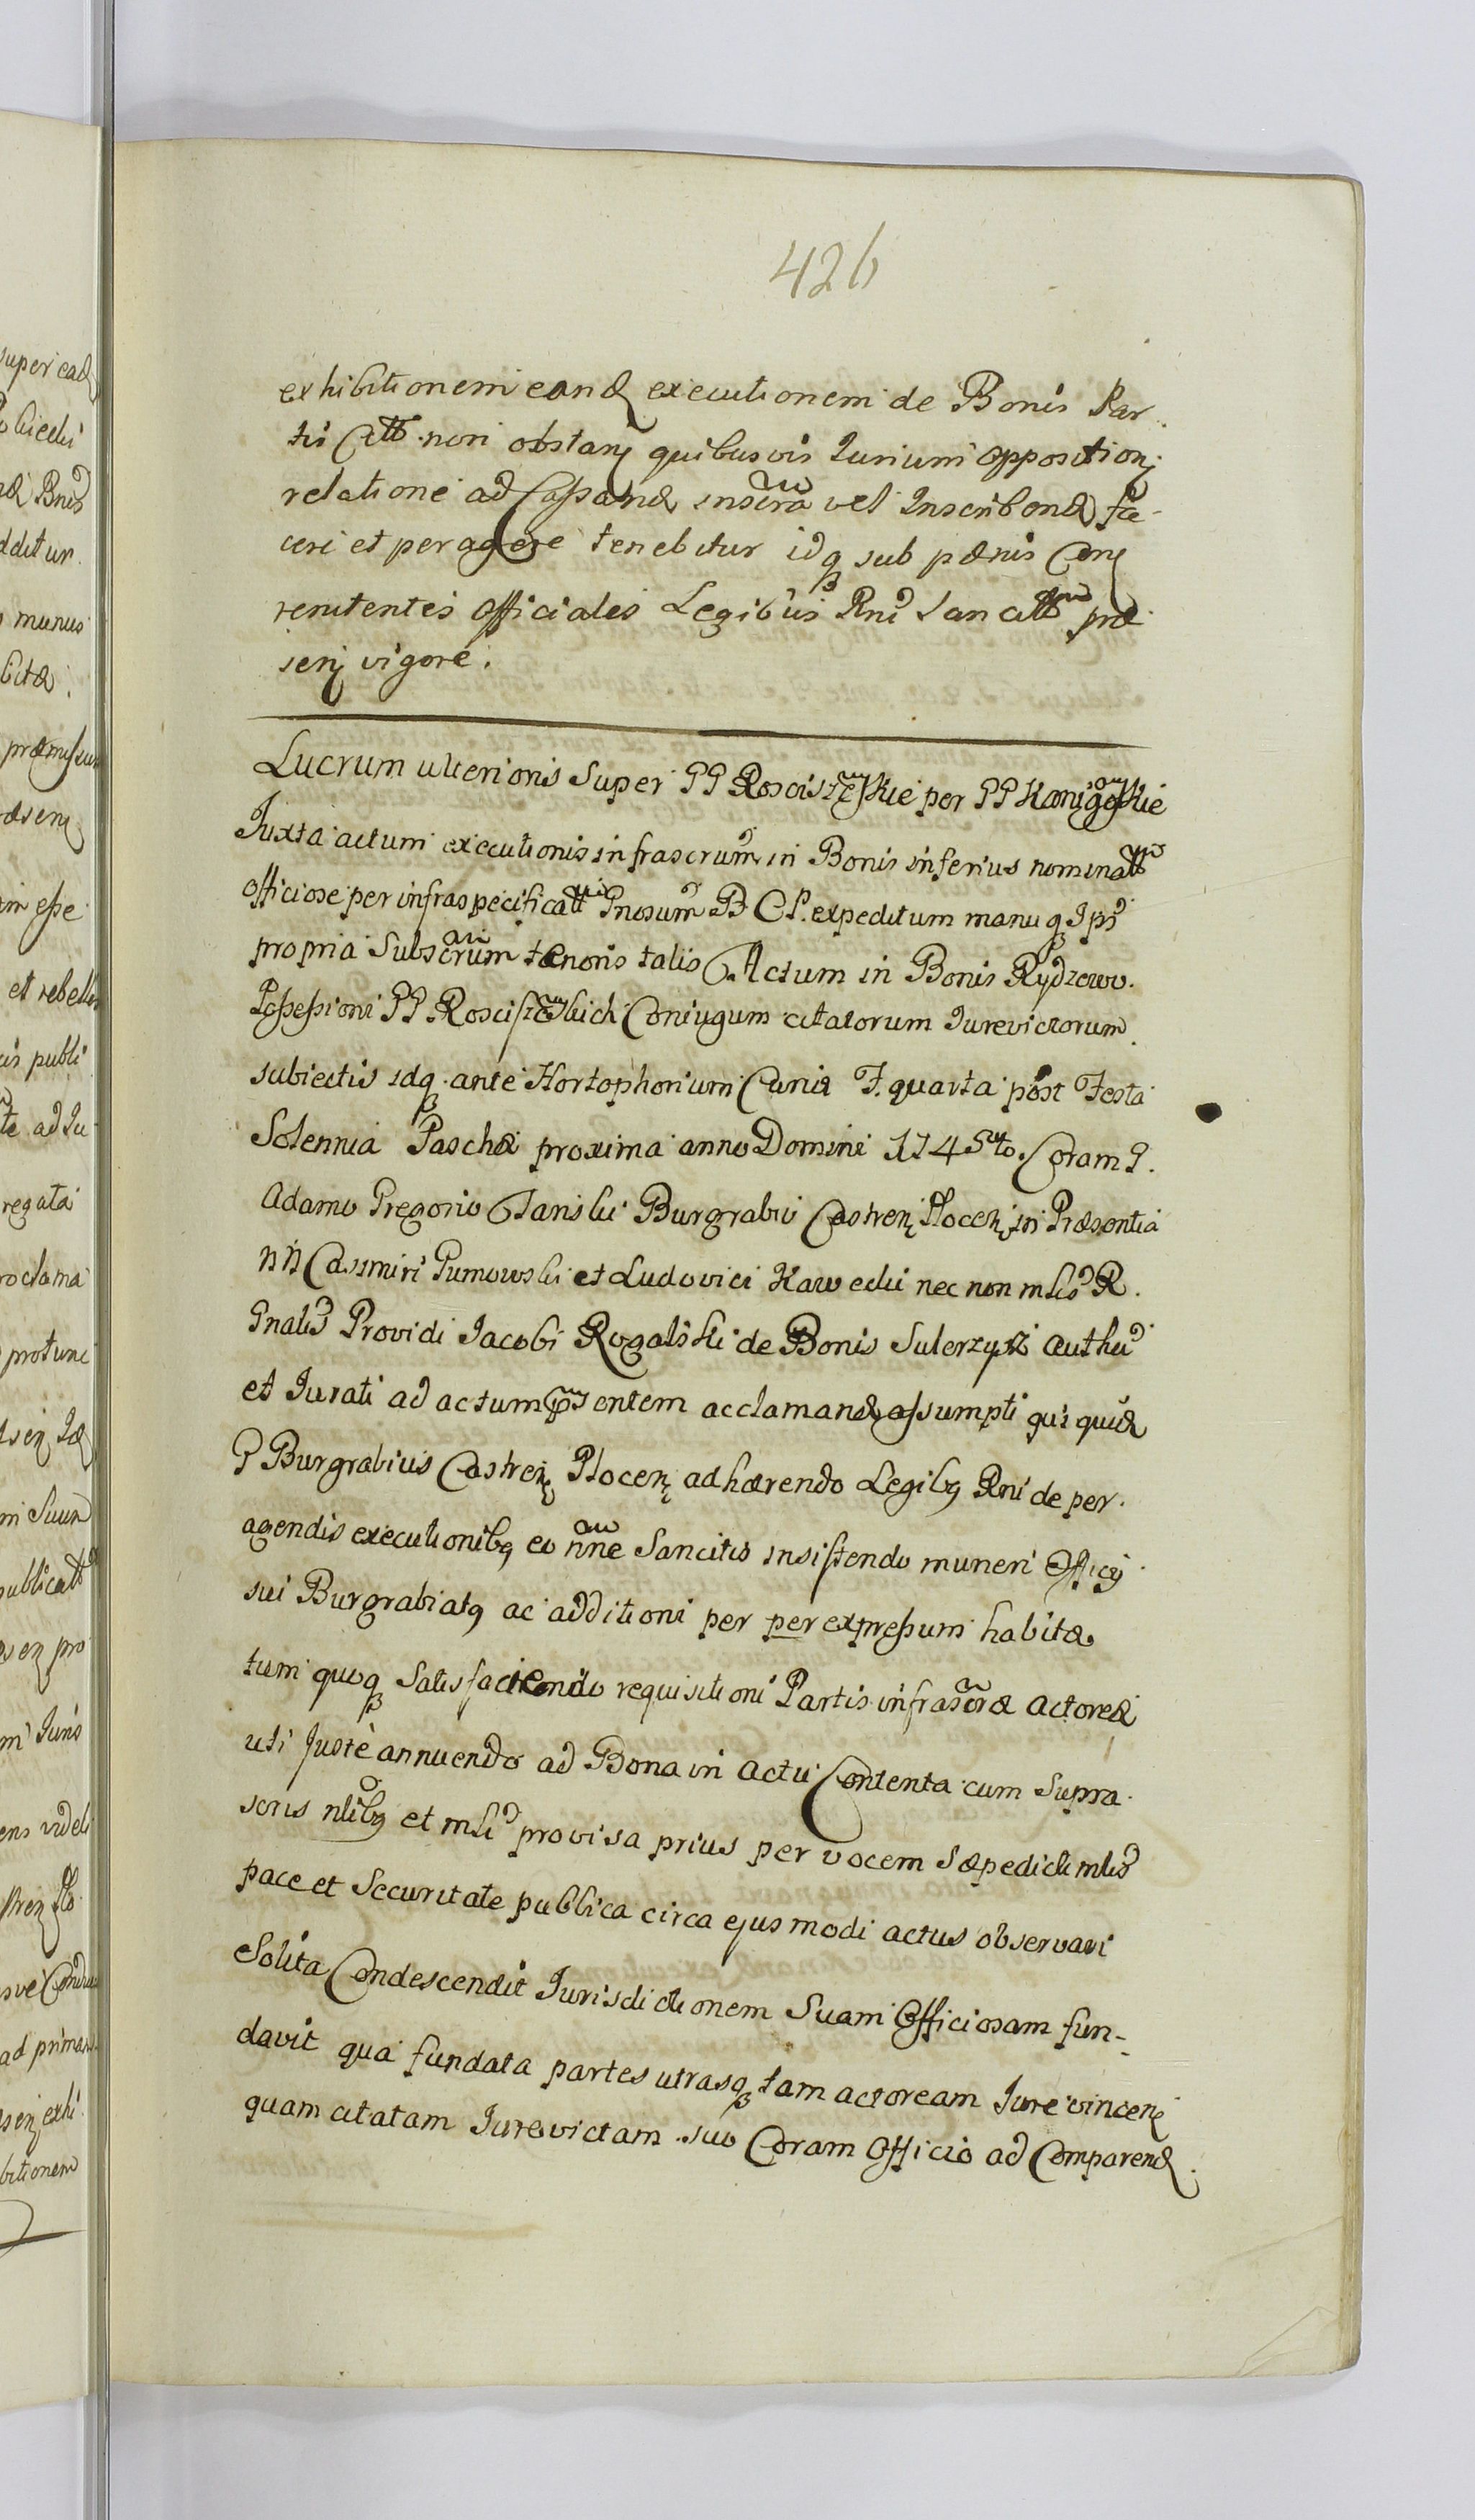 426
exhibitionem eand executionem de Bonis Par
tis Citt non obstan quibusvis Iurium opposition
relatione ad Cassand inscra vel Inscribend fa-
cere et peragere tenebitur idq sub pœnis Con
renitentes Officiales Legibus Rni Sancitt præ
sen vigore.
Lucrum ulterioris Super PP Rosciszewskie per PP Kanigowskie
Iuxta actum executionis infrascrum in Bonis inferius nominatt
officiose per infraspecificatt Gnosum B C P. expeditum manuq Ips
propria Subscrum tænoris talis Actum in Bonis Rydzewo
Possessioni PP Rosciszewskich Coniugum citatorum Iurevictorum
subiectis idq ante Hortophorium Curia F. quarta post Festa
Solennia Paschæ proxima anno Domini 1745to. Coram G.
Adamo Gregorio Janski Burgrabio Castren Plocen in Præsentia
NN Casimiri Gumowski et Ludovici Kawecki nec non mlis R.
Gnalis Providi Iacobi Rogalski de Bonis Sulerzysz authen
et Iurati ad actum psentem acclamand assumpti qui quid
G Burgrabius Castren Plocen adhærendo Legibq Rni de per
agendis executionibq eo nne Sancitis insistendo muneri Officij
sui Burgrabiatq ac additioni per per expressum habitæ
tum quoq Satisfaciendo requisitioni Partis infrascræ actoreæ
uti Juste annuendo ad Bona in actu Contenta cum Supra
scris nlibq et mli provisa prius per vocem Sæpedicti mlis
pace et Securitate publica circa ejusmodi actus observari
Solita Condescendit Iurisdictionem Suam Officiosam fun-
davit qua fundata partes utrasq tam actoream Iurevincen
quam citatam Iurevictam suo Coram Officio ad Comparend